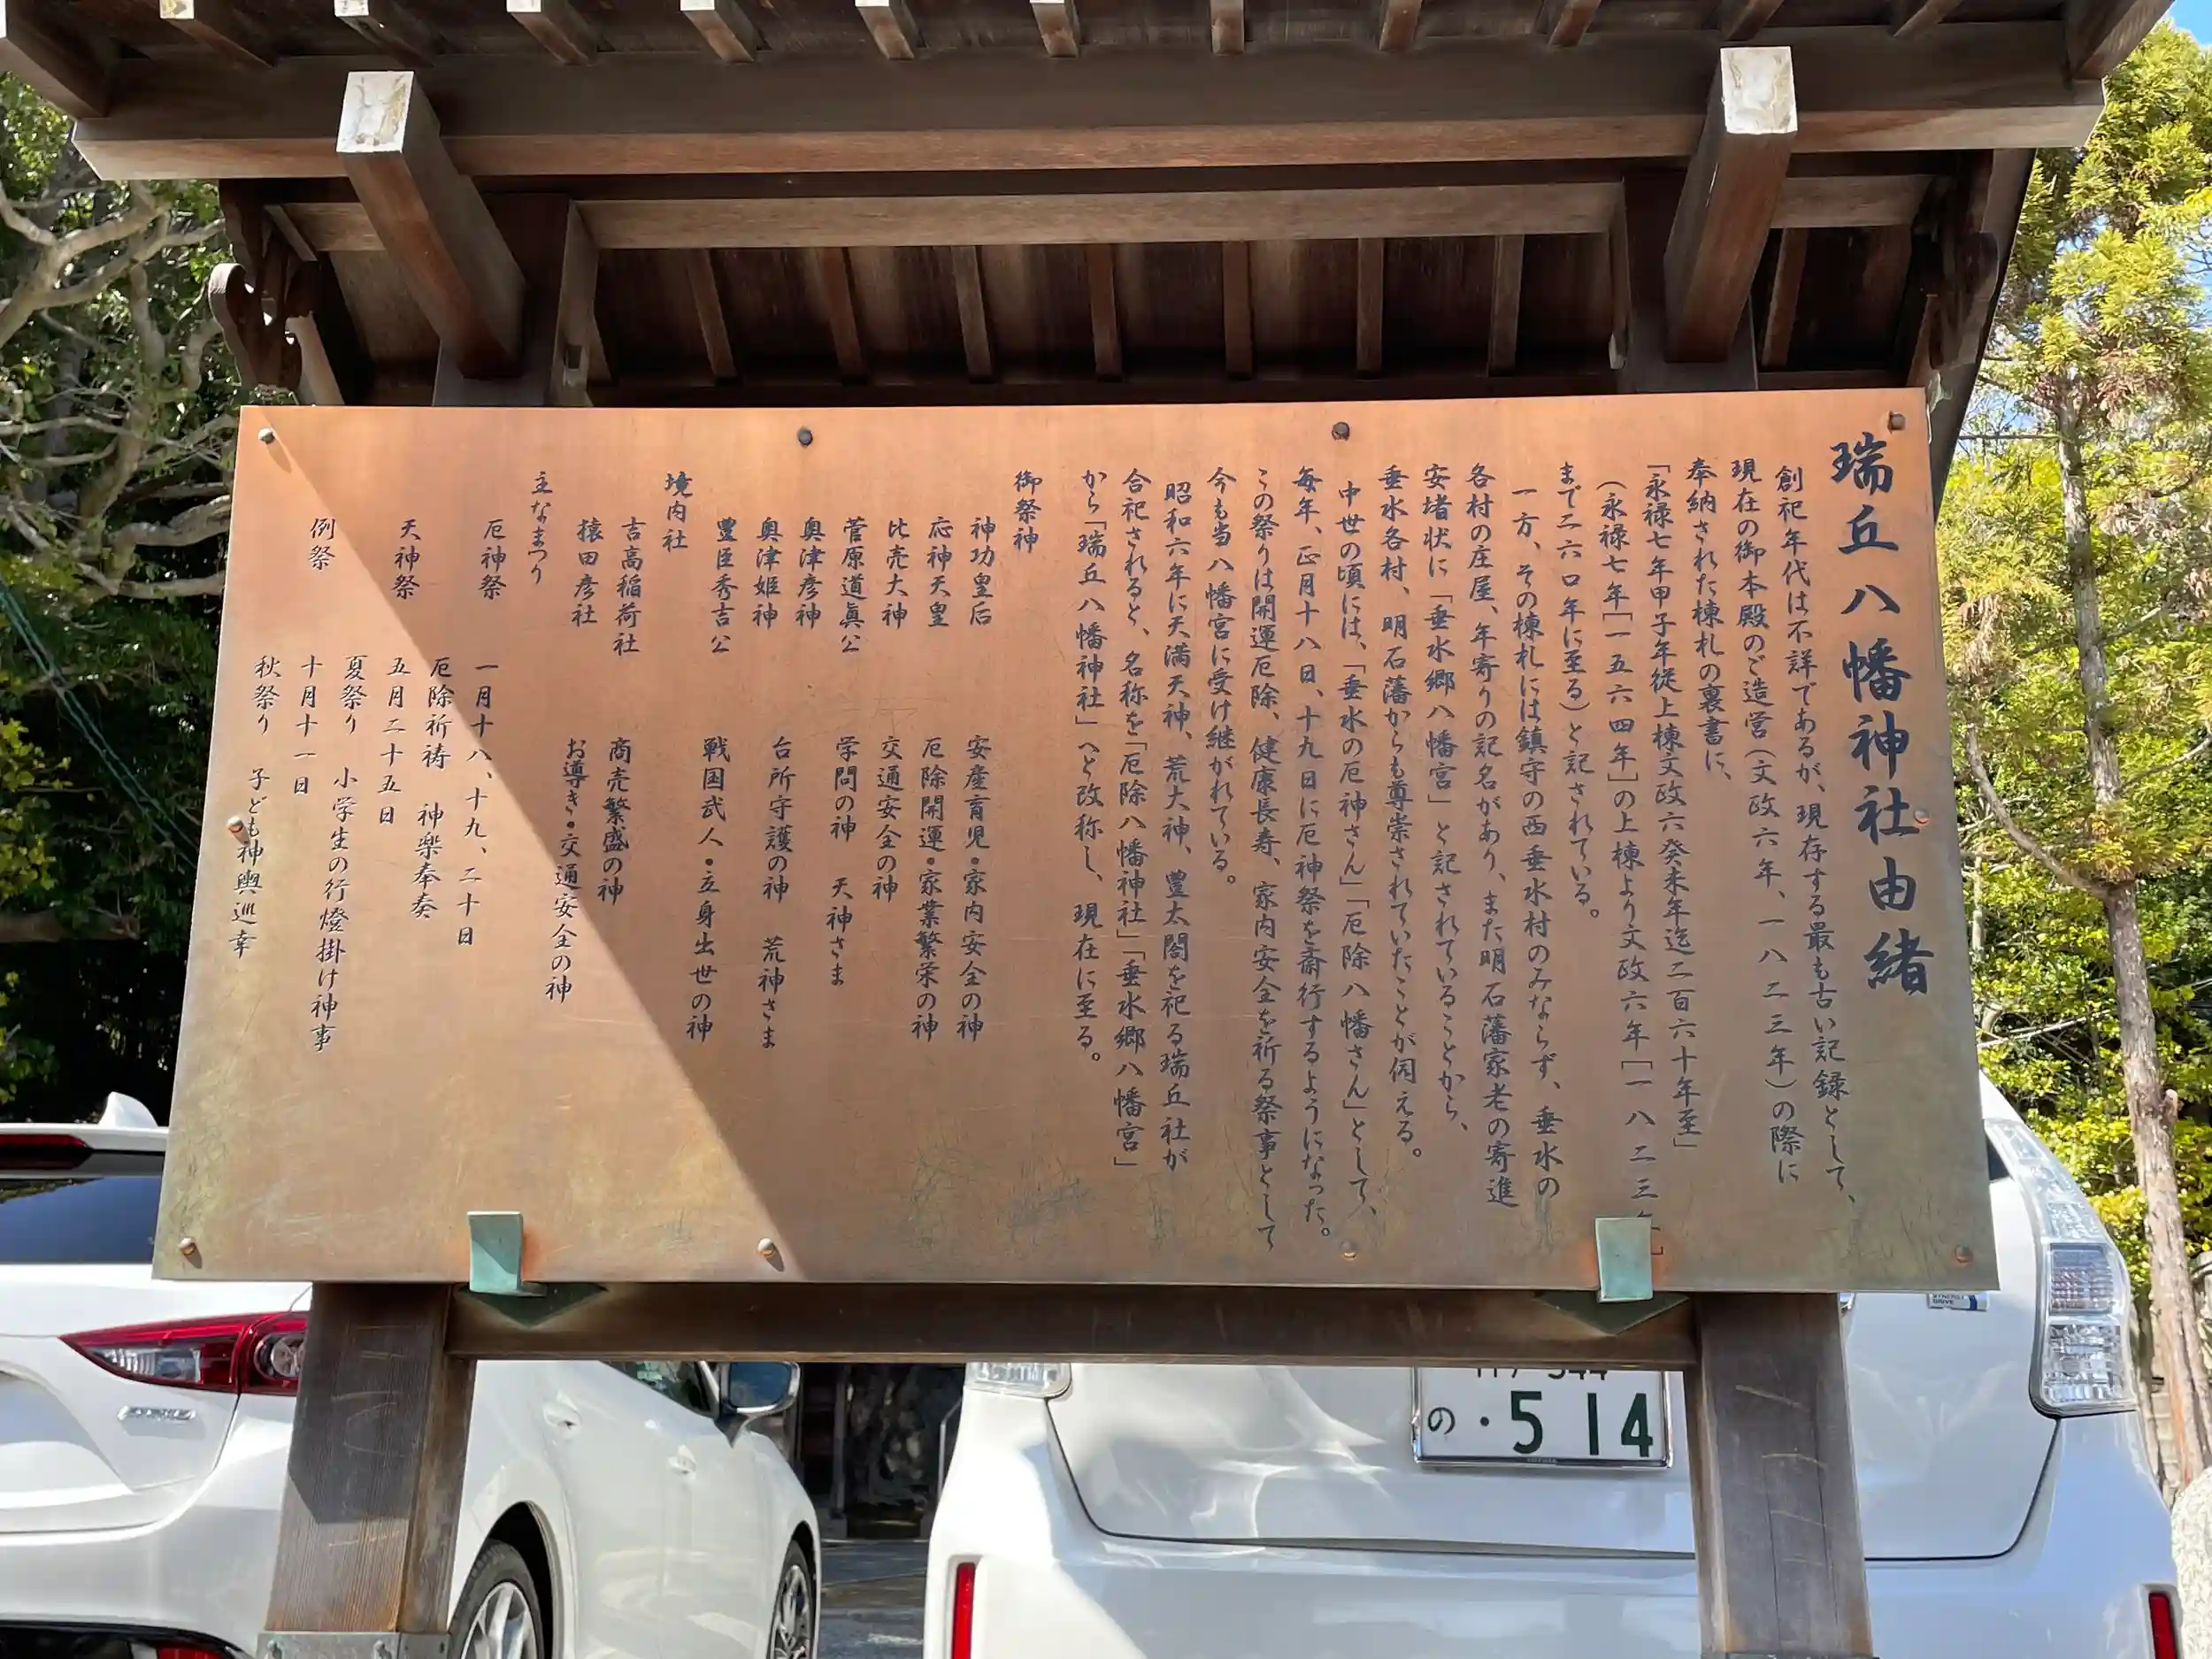 瑞丘八幡神社由緒
創祀年代は不詳であるが、現存する最も古い記録として、
現在の御本殿のご造営（文政六年、一八二三年）の際に
奉納された棟札の裏書に、
「永禄七年甲子年従上棟文政六癸未年迄二百六十年至」
（永禄七年［一五六四年］の上棟より文政六年［一八二三年］
まで二六〇年に至る）と記されている。
一方、その棟札には鎮守の西垂水村のみならず、垂水の
各村の庄屋、年寄りの記名があり、また明石藩家老の寄進
安堵状に「垂水郷八幡宮」と記されていることから、
垂水各村、明石藩からも尊崇されていたことが伺える。
中世の頃には、「垂水の厄神さん」「厄除八幡さん」として、
毎年、正月十八日、十九日に厄神祭を斎行するようになった。
この祭りは開運厄除、健康長寿、家内安全を祈る祭事として
今も当八幡宮に受け継がれている。
昭和六年に天満天神、荒大神、豊太閤を祀る瑞丘社が
合祀されると、名称を「厄除八幡神社」「垂水郷八幡宮」
から「瑞丘八幡神社」へと改称し、現在に至る。
御祭神
神功皇后 安産育児・家内安全の神
応神天皇 厄除開運・家業繁栄の神
比売大神 交通安全の神
菅原道眞公 学問の神 天神さま
奥津彦神
奥津姫神 台所守護の神 荒神さま
豊臣秀吉公 戦国武人・立身出世の神
境内社
吉高稲荷社 商売繁盛の神
猿田彦社 お導き・交通安全の神
主なまつり
厄神祭 一月十八、十九、二十日
厄除祈祷 神楽奉奏
天神祭 五月二十五日
夏祭り 小学生の行燈掛け神事
例祭 十月十一日
秋祭り 子ども神輿巡幸
の・514